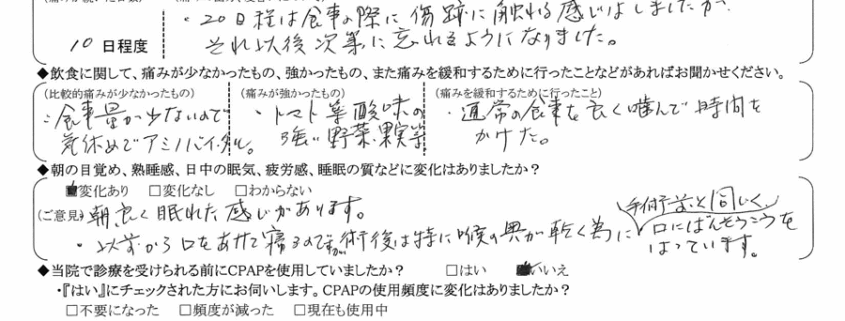 ・20日程は食事の際に傷跡に触れる感じはしましたが、
10日程度
それ以後次第に忘れるようになりました。
◆飲食に関して、痛みが少なかったもの、強かったもの、また痛みを緩和するために行ったことなどがあればお聞かせください。
(比較的痛みが少なかったもの) (痛みが強かったもの) (痛みを緩和するために行ったこと)
食事量が少ないので ・トマト等酸味の ・通常の食事を良く噛んで時間を
気休めでアミノバイタル。 強い野菜・果実等 かけた。
◆朝の目覚め、熟睡感、日中の眠気、疲労感、睡眠の質などに変化はありましたか?
■変化あり □変化なし □わからない
(ご意見) 朝良く眠れた感じがあります。
手術前と同じく
・以前から口をあけて寝るので術後は特に喉の奥が乾く為に口にばんそうこうを
はっています。
◆当院で診療を受けられる前にCPAPを使用していましたか? □はい ■いいえ
・『はい』にチェックされた方にお伺いします。CPAPの使用頻度に変化はありましたか?
□不要になった □頻度が減った □現在も使用中